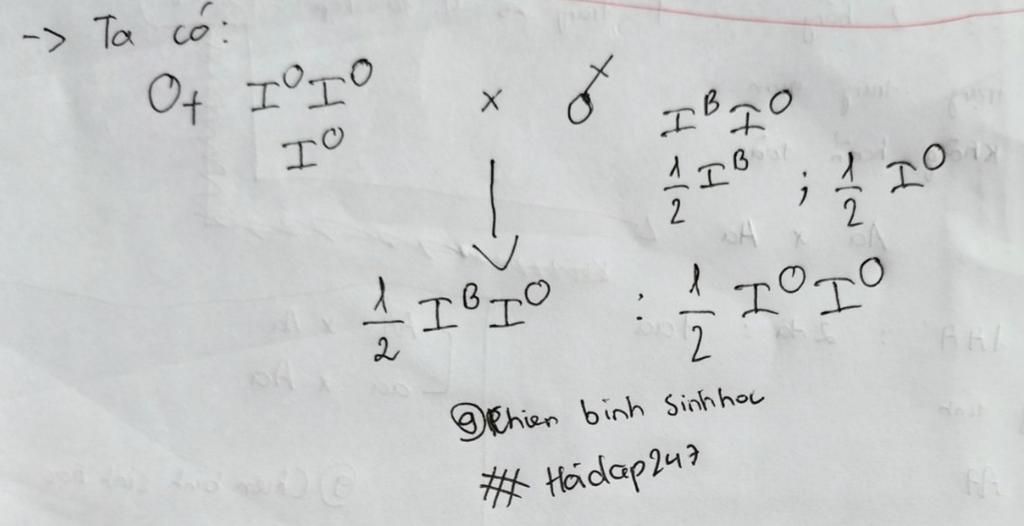 -> Ta có:
♀ I^O I^O × ♂ I^B I^O
I^O 1/2 I^B ; 1/2 I^O
1/2 I^B I^O : 1/2 I^O I^O
@Chien binh sinh hoc
# Hỏidap247